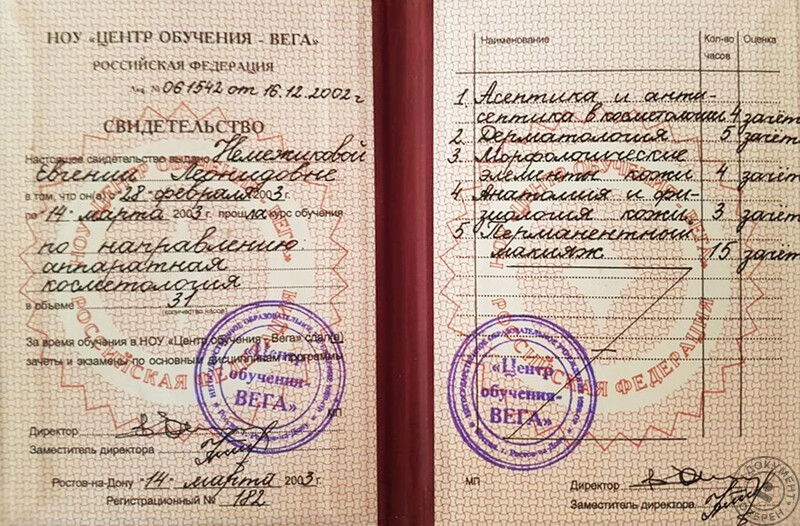 НОУ «ЦЕНТР ОБУЧЕНИЯ - ВЕГА»
РОССИЙСКАЯ ФЕДЕРАЦИЯ
Лиц. № 061542 от 16.12.2002 г
СВИДЕТЕЛЬСТВО
Настоящее свидетельство выдано Немежиковой
Евгении Леонидовне
в том, что он(а) с 28 февраля 2003 г.
по 14 марта 2003 г. прошла курс обучения
по направлению
аппаратная
косметология
в объеме 31
(количество часов)
За время обучения в НОУ «Центр обучения - Вега» сдал(а)
зачеты и экзамены по основным дисциплинам программы
МП
Директор
Заместитель директора
Ростов-на-Дону 14 марта 2003 г.
Регистрационный № 182
«Центр
обучения-
ВЕГА»
Наименование Кол-во часов Оценка
1 Асептика и анти-
септика в косметологии 4 зачёт
2 Дерматология 5 зачёт
3 Морфологические
элементы кожи 4 зачёт
4 Анатомия и фи-
зиология кожи 3 зачёт
5 Перманентный
макияж 15 зачёт
«Центр
обучения-
ВЕГА»
МП
Директор
Заместитель директора
ДОКУМЕНТ